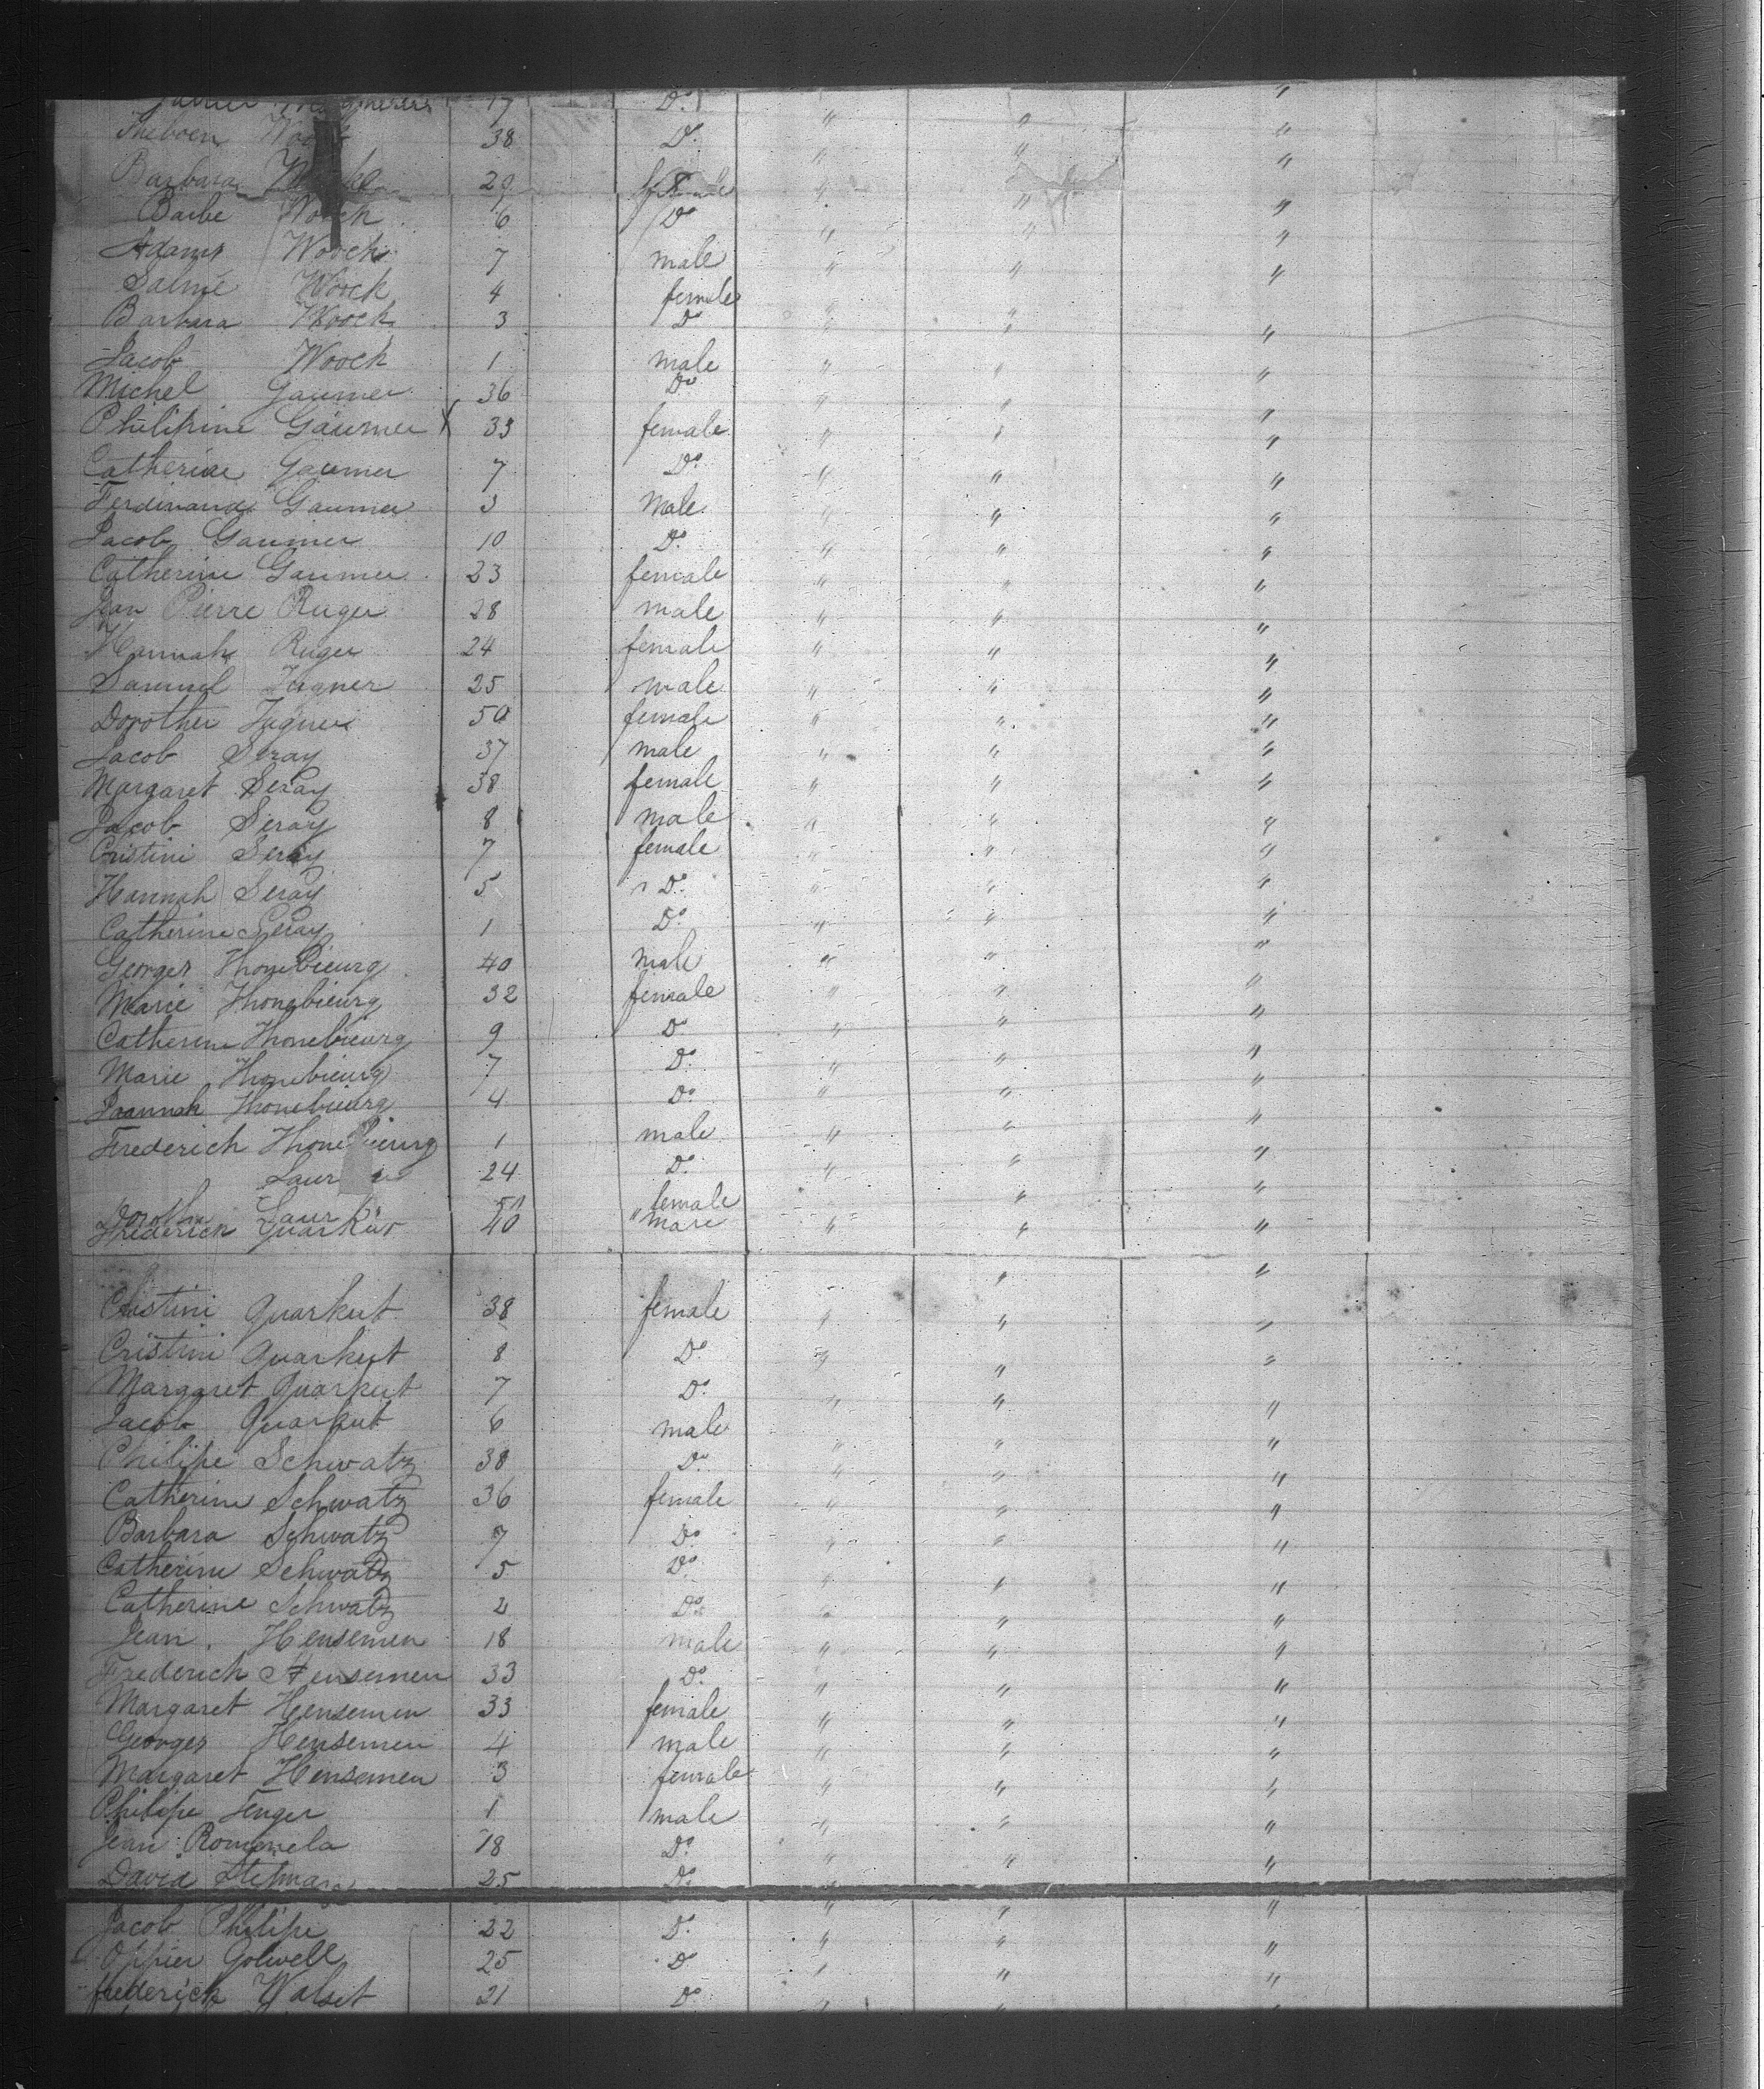 17 Do "
Theboen 38 Do " " "
Barbara 29 female " " "
Barbe Woock 6 Do " " "
Adams Woock 7 male " " "
Salmé Woock 4 female " " "
Barbara Woock 3 Do " " "
Jacob Woock 1 male " " "
Michel Gaumer 36 Do " " "
Philipine Gaumer X 33 female " " "
Catherine Gaumer 7 Do " " "
Ferdinand Gaumer 3 Male " " "
Jacob Gaumer 10 Do " " "
Catherine Gaumer 23 female " " "
Jean Pierre Ruger 28 male " " "
Hannah Ruger 24 female " " "
Samuel Jugner 25 male " " "
Dorother Jugner 50 female " " "
Jacob Seray 37 male " " "
Margaret Seray 38 female " " "
Jacob Seray 8 male " " "
Cristini Seray 7 female " " "
Hannah Seray 5 Do " " "
Catherine Seray 1 Do " " "
Georges Thonebieurg 40 male " " "
Marie Thonebieurg 32 female " " "
Catherine Thonebieurg 9 Do " " "
Marie Thonebieurg 7 Do " " "
Joannah Thonebieurg 4 Do " " "
Frederich Thonebieurg 1 male " " "
Laur 24 Do " " "
Laur female " "
Frederich Quarkut 40 male " " "
Cristini Quarkut 38 female " " "
Cristini Quarkut 8 Do " " "
Margaret Quarkut 7 Do " " "
Jacob Quarkut 6 male " " "
Philipe Schwatz 38 Do " " "
Catherine Schwatz 36 female " " "
Barbara Schwatz 7 Do " " "
Catherine Schwatz 5 Do " " "
Catherine Schwatz 2 Do " " "
Jean Hensemen 18 male " " "
Frederich Hensemen 33 Do " " "
Margaret Hensemen 33 female " " "
Georges Hensemen 4 male " " "
Margaret Hensemen 3 female " " "
Philipe Fenger 1 male " " "
Jean Rommela 18 Do " " "
David 25 Do " " "
Jacob Philipe 22 Do " " "
Oppier Golwell 25 Do " " "
frederick Walset 21 Do " " "